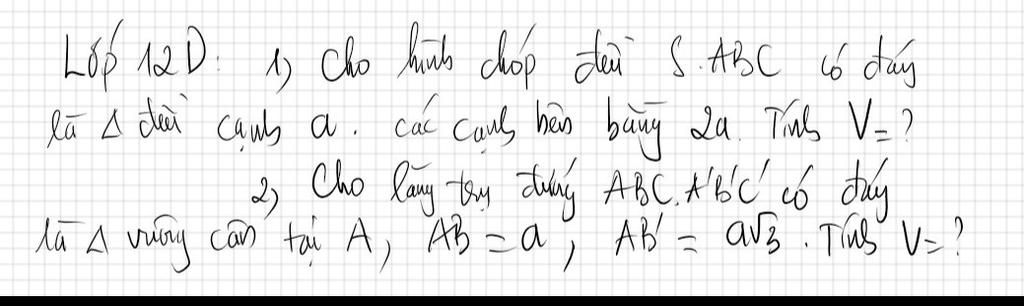 Lớp 12D: 1) Cho hình chóp đều S.ABC có đáy
là Δ đều cạnh a. các cạnh bên bằng 2a. Tính V=?
2) Cho lăng trụ đứng ABC.A'B'C' có đáy
là Δ vuông cân tại A, AB = a, AB' = a√3. Tính V=?